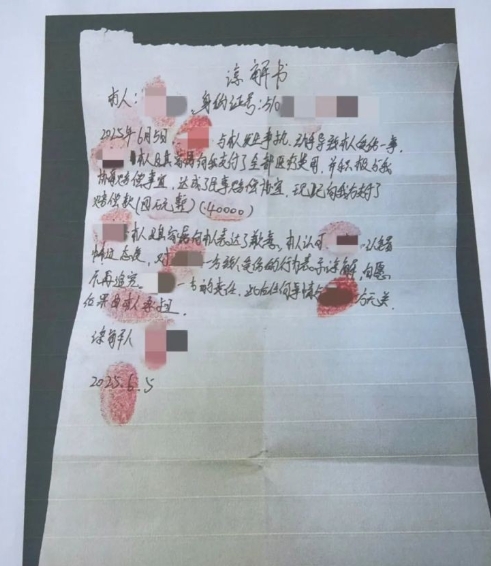 谅解书
本人: 身份证号:510
2025年6月5日 与本人发生争执,动手导致本人受伤一事,
本人且其家属向我支付了全部医药费用,并积极与我
协商赔偿事宜,达成了民事赔偿协议,现已向我方支付了
赔偿款(四万元整)(40000)
本人且其家属向本人表达了歉意,本人认可 认错
态度,对 一方致人受伤的行为表示谅解,自愿
不再追究 一方的责任,此后任何事情与 方无关
后果由本人承担
谅解人
2025.6.5